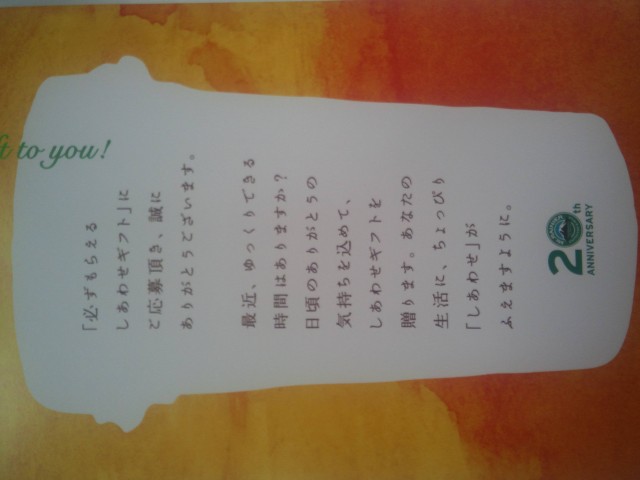 ft to you!
「必ずもらえる
しあわせギフト」に
ご応募頂き、誠に
ありがとうございます。
最近、ゆっくりできる
時間はありますか?
日頃のありがとうの
気持ちを込めて、
しあわせギフトを
贈ります。あなたの
生活に、ちょっぴり
「しあわせ」が
ふえますように。
20th
ANNIVERSARY